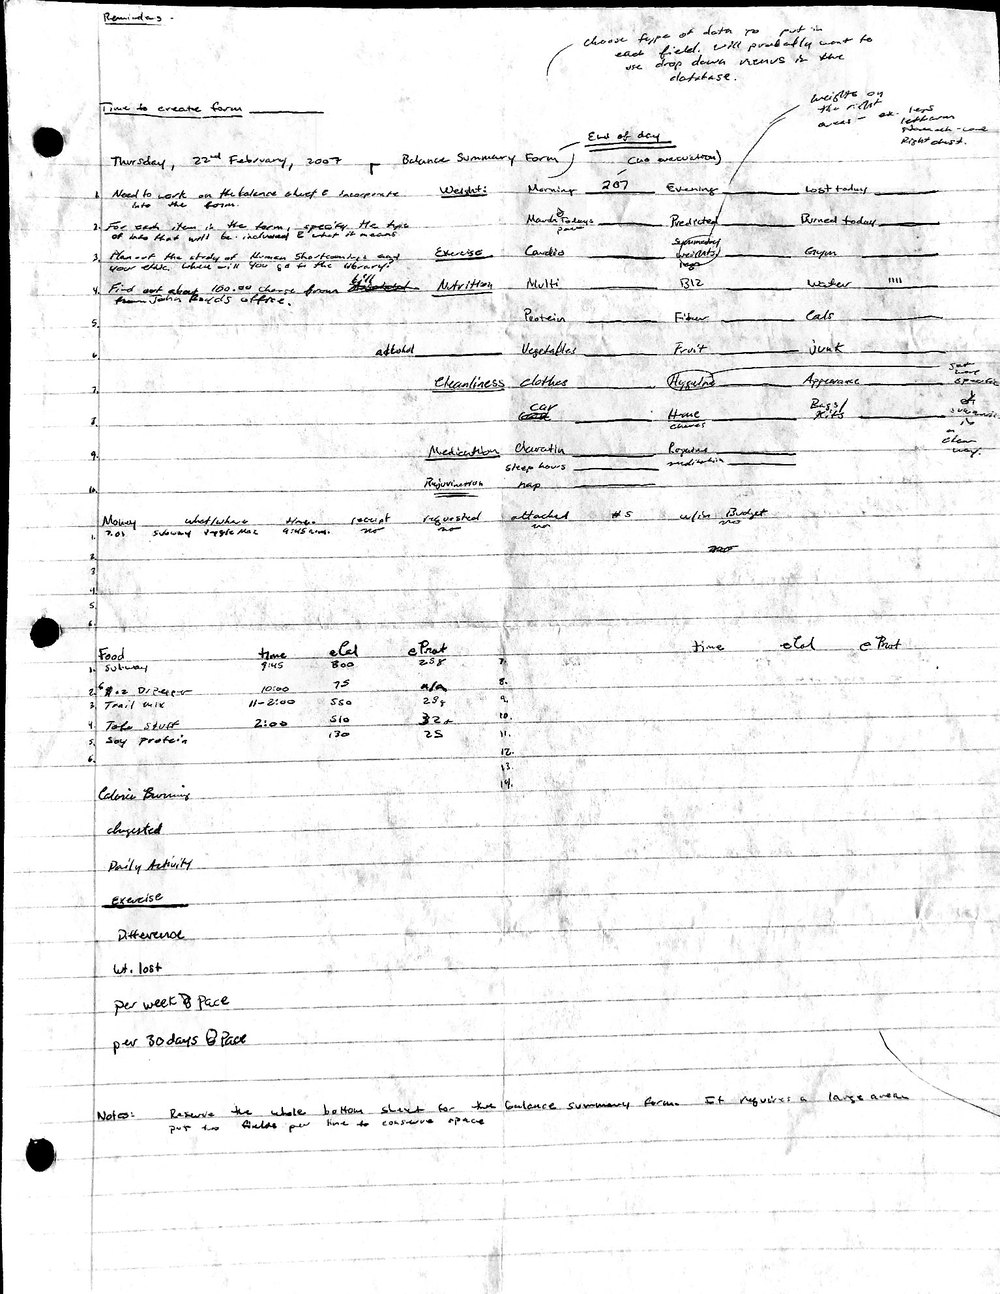 Reminders -
choose type of data to put in
each field. will probably want to
use drop down menus in the
database.
Time to create form
weights on
the right
areas - ex. legs
left arm
stomach - core
Right chest.
End of day
Thursday, 22nd February, 2007 Balance Summary Form (no evacuation)
1. Need to work on the balance sheet & incorporate
into the form.
Weight: Morning 207 Evening Lost today
2. For each item in the form, specify the type
of info that will be included & what it means
March Todays Predicted Burned today
pace
3. Plan out the study of Human Shortcomings and
your ethic. Where will you go to the library?
Exercise Cardio weights Gym
legs
4. Find out about 100.00 charge from
from John office.
Nutrition Multi B12 Water ""
5. Protein Fiber Cals
6. alcohol Vegetables Fruit junk
7. Cleanliness clothes Hygeine Appearance
8. car Home Bags/
chores Kits
clean
way.
9. Medication Claratin
sleep hours meditation
10. Rejuvination nap
Money what/where time receipt requested attached #s w/in Budget
1. 7.01 subway veggie Max 9:45 no no no no
2.
3
4
5.
6.
Food time eCal eProt time eCal eProt
1. Subway 9:45 800 25g 7.
2. Dr Pepper 10:00 75 n/a 8.
3. Trail mix 11-2:00 550 25g 9.
4. Tofu stuff 2:00 510 32+ 10.
5. Soy protein 130 25 11.
6. 12.
13.
14.
Calorie Burning
Ingested
Daily Activity
exercise
Difference
Wt. lost
per week @ Pace
per 30 days @ Pace
Notes: Reserve the whole bottom sheet for the balance summary form. It requires a large area
put two fields per line to conserve space